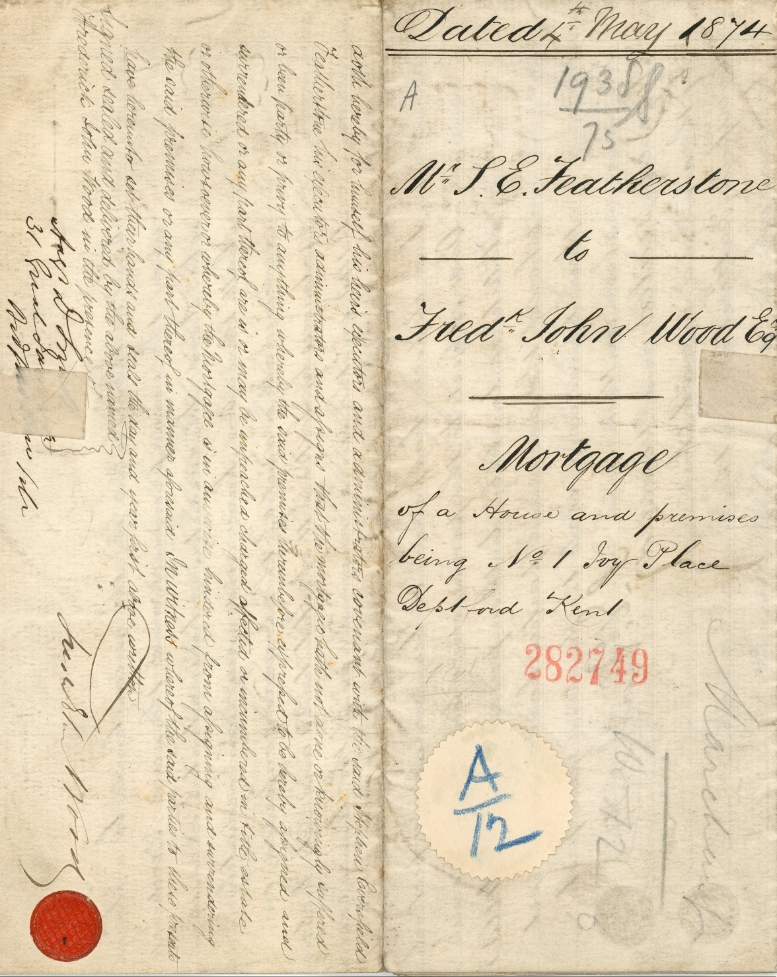 Dated 4th May 1874
A
1938
75
Mr S. E. Featherstone
to
Fredk John Wood Esq
Mortgage
of a House and premises
being No 1 Ivy Place
Deptford Kent
282749
A/12
doth hereby for himself his heirs executors and administrators covenant with the said Stephen
Featherstone his executors administrators and assigns that the mortgagee hath not done or knowingly suffered
or been party or privy to anything whereby the said premises hereinbefore expressed to be hereby assigned and
surrendered or any part thereof are is or may be impeached charged affected or incumbered in title estate
or otherwise howsoever or whereby the Mortgagee is in any wise hindered from assigning and surrendering
the said premises or any part thereof in manner aforesaid In witness whereof the said parties to these presents
have hereunto set their hands and seals the day and year first above written
Signed sealed and delivered by the above named
Frederick John Wood in the presence
31
Wood